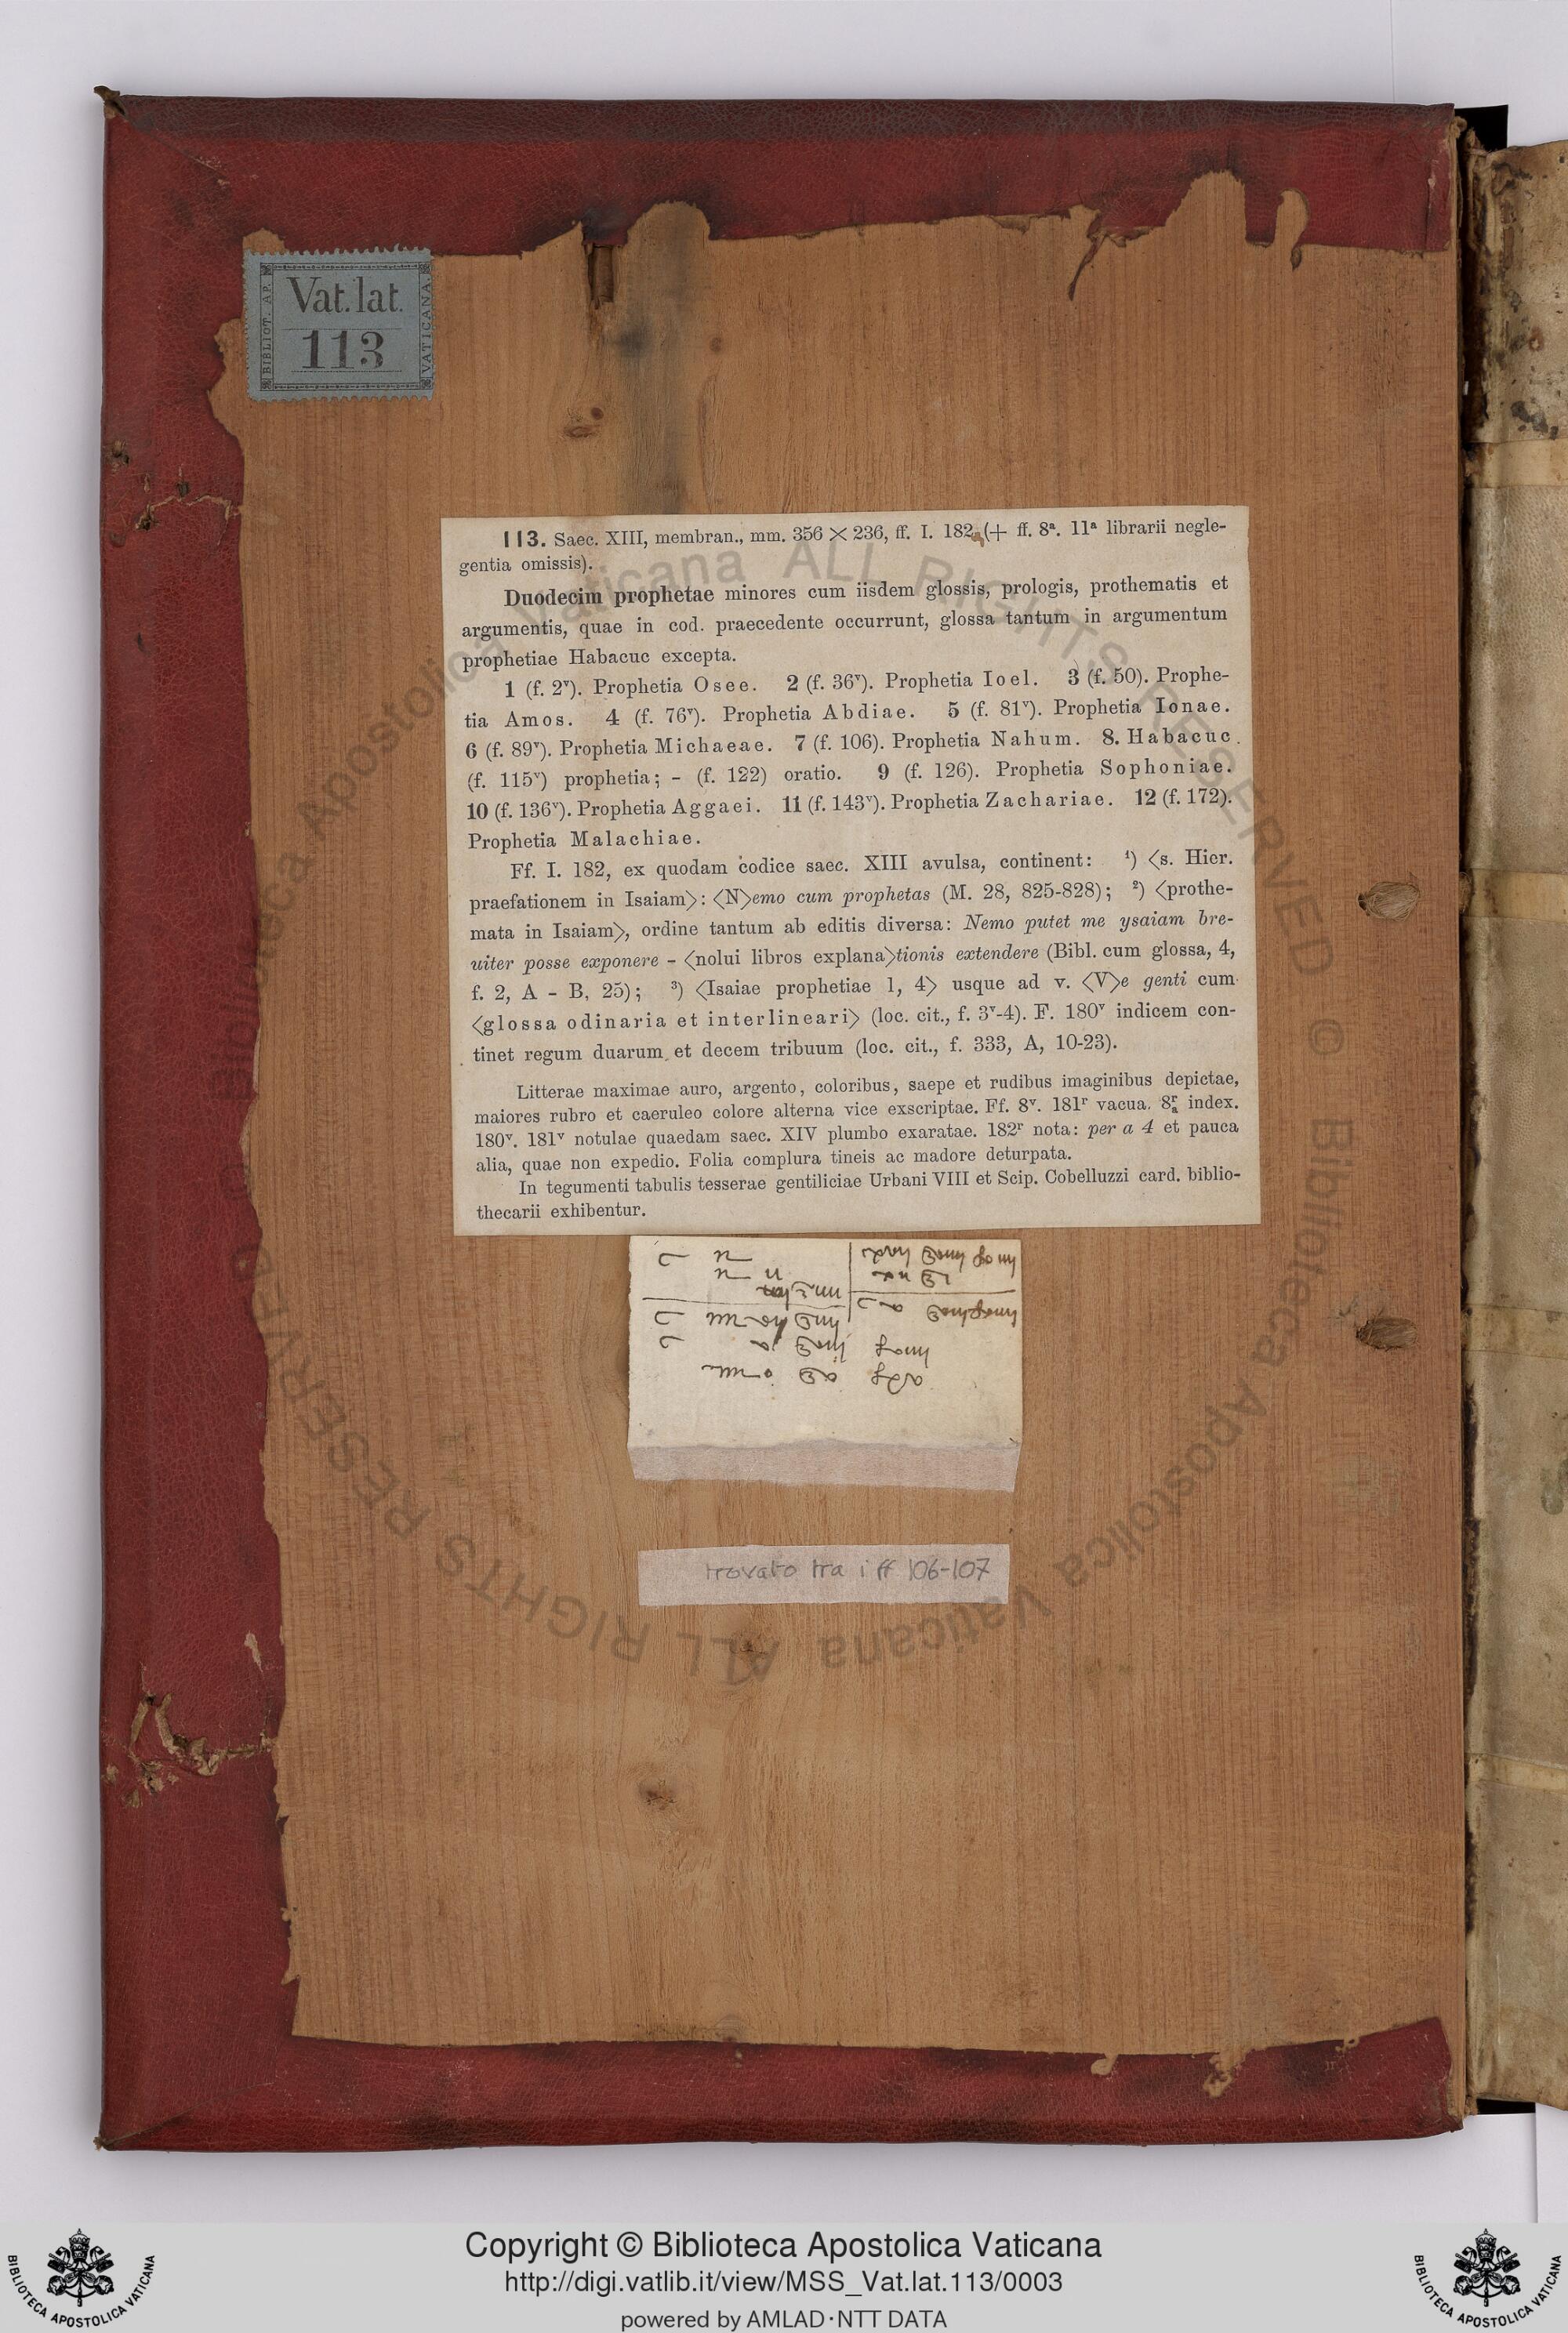 BIBLIOT. AP. VATICANA
Vat. lat.
113
113. Saec. XIII, membran., mm. 356 × 236, ff. I. 182 (+ ff. 8ª. 11ª librarii negle-
gentia omissis).
Duodecim prophetae minores cum iisdem glossis, prologis, prothematis et
argumentis, quae in cod. praecedente occurrunt, glossa tantum in argumentum
prophetiae Habacuc excepta.
1 (f. 2ᵛ). Prophetia Osee. 2 (f. 36ᵛ). Prophetia Ioel. 3 (f. 50). Prophe-
tia Amos. 4 (f. 76ᵛ). Prophetia Abdiae. 5 (f. 81ᵛ). Prophetia Ionae.
6 (f. 89ᵛ). Prophetia Michaeae. 7 (f. 106). Prophetia Nahum. 8. Habacuc
(f. 115ᵛ) prophetia; - (f. 122) oratio. 9 (f. 126). Prophetia Sophoniae.
10 (f. 136ᵛ). Prophetia Aggaei. 11 (f. 143ᵛ). Prophetia Zachariae. 12 (f. 172).
Prophetia Malachiae.
Ff. I. 182, ex quodam codice saec. XIII avulsa, continent: ¹) ⟨s. Hier.
praefationem in Isaiam⟩: ⟨N⟩emo cum prophetas (M. 28, 825-828); ²) ⟨prothe-
mata in Isaiam⟩, ordine tantum ab editis diversa: Nemo putet me ysaiam bre-
uiter posse exponere - ⟨nolui libros explana⟩tionis extendere (Bibl. cum glossa, 4,
f. 2, A - B, 25); ³) ⟨Isaiae prophetiae 1, 4⟩ usque ad v. ⟨V⟩e genti cum
⟨glossa odinaria et interlineari⟩ (loc. cit., f. 3ᵛ-4). F. 180ᵛ indicem con-
tinet regum duarum et decem tribuum (loc. cit., f. 333, A, 10-23).
Litterae maximae auro, argento, coloribus, saepe et rudibus imaginibus depictae,
maiores rubro et caeruleo colore alterna vice exscriptae. Ff. 8ᵛ. 181ʳ vacua. 8ʳₐ index.
180ᵛ. 181ᵛ notulae quaedam saec. XIV plumbo exaratae. 182ʳ nota: per a 4 et pauca
alia, quae non expedio. Folia complura tineis ac madore deturpata.
In tegumenti tabulis tesserae gentiliciae Urbani VIII et Scip. Cobelluzzi card. biblio-
thecarii exhibentur.
trovato tra i ff 106-107
© Biblioteca Apostolica Vaticana ALL RIGHTS RESERVED © Biblioteca Apostolica Vaticana ALL RIGHTS RESERVED
Copyright © Biblioteca Apostolica Vaticana
http://digi.vatlib.it/view/MSS_Vat.lat.113/0003
powered by AMLAD·NTT DATA
BIBLIOTECA APOSTOLICA VATICANA
BIBLIOTECA APOSTOLICA VATICANA